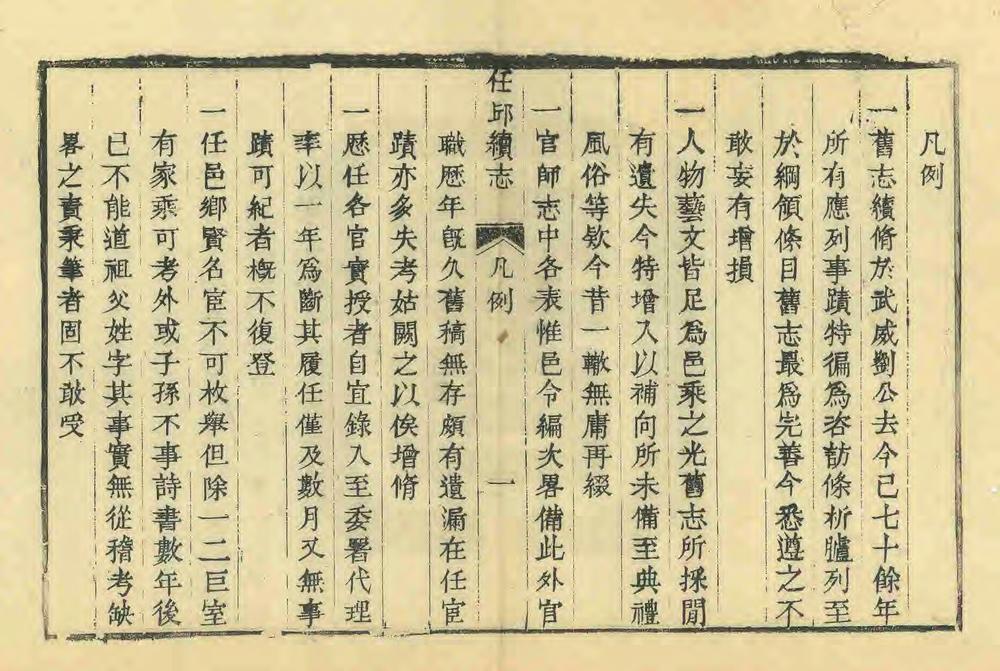 凡例
一舊志續脩於武威劉公去今已七十餘年
所有應列事蹟特徧爲咨訪條析臚列至
於綱領條目舊志最爲完善今悉遵之不
敢妄有增損
一人物藝文皆足爲邑乘之光舊志所採間
有遺失今特增入以補向所未備至典禮
風俗等欵今昔一轍無庸再綴
一官師志中各表惟邑令編次畧備此外官
任邱續志 凡例 一
職歷年旣久舊稿無存頗有遺漏在任宦
蹟亦多失考姑闕之以俟增脩
一歷任各官實授者自宜錄入至委署代理
率以一年爲斷其履任僅及數月又無事
蹟可紀者槪不復登
一任邑鄉賢名宦不可枚舉但除一二巨室
有家乘可考外或子孫不事詩書數年後
已不能道祖父姓字其事實無從稽考缺
畧之責秉筆者固不敢受